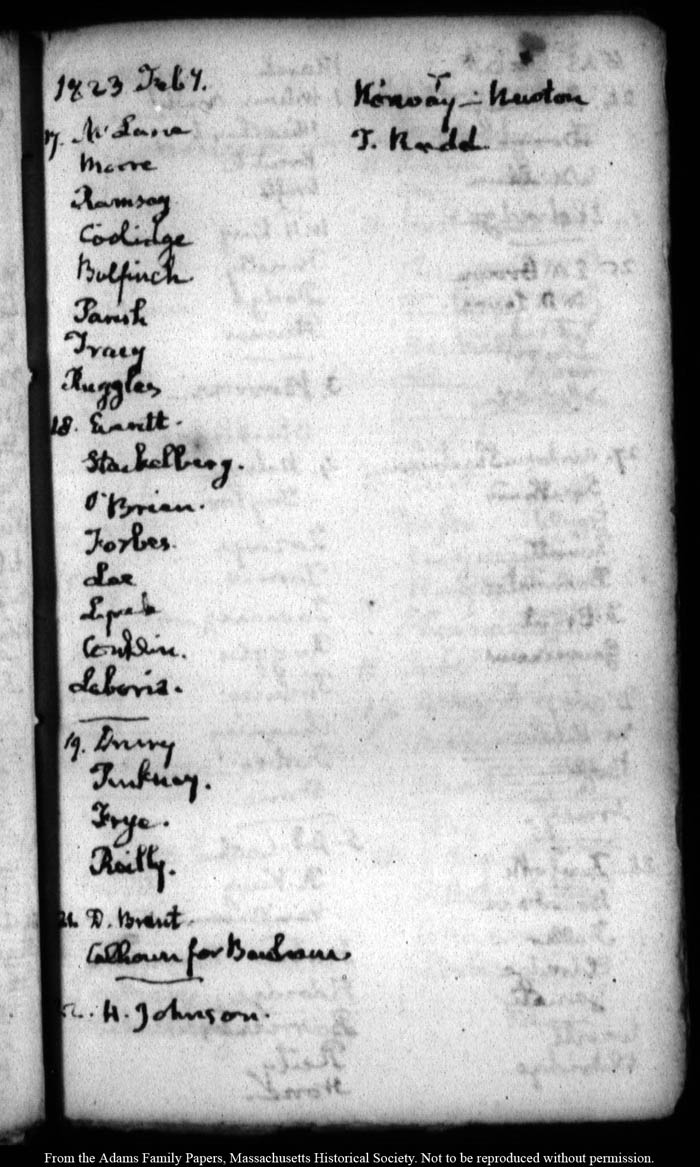 1823 Feby.
17. McLane
Moore
Ramsay
Coolidge
Bulfinch.
Parish
Tracy
Ruggles
18. Everett.
Stackelberg.
O'Brien.
Forbes.
Lee
Conklin.
Laborie.
19. Drury
Pinkney.
Frye.
Reilly.
21. D. Brent.
Calhoun for
H. Johnson.
Newton
T. Rudd.
From the Adams Family Papers, Massachusetts Historical Society. Not to be reproduced without permission.